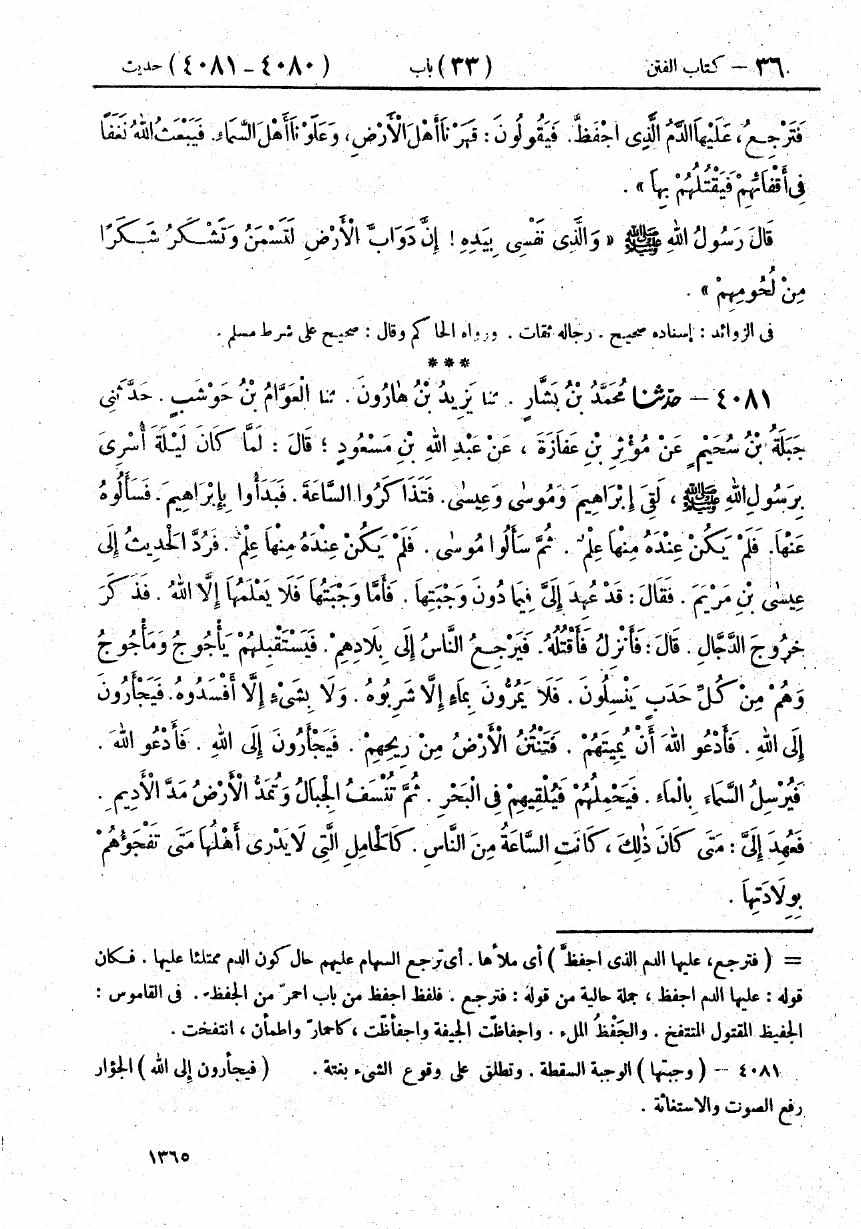 ٣٦ – كتاب الفتن (٣٣) باب (٤٠٨٠ – ٤٠٨١) حديث
فَتَرْجِعُ، عَلَيْهَا الدَّمُ الَّذِى اجْفَظَّ. فَيَقُولُونَ: قَهَرْنَا أَهْلَ الْأَرْضِ، وَعَلَوْنَا أَهْلَ السَّمَاءِ. فَيَبْعَثُ اللهُ نَغَفًا
فِى أَقْفَائِهِمْ فَيَقْتُلُهُمْ بِهَا».
قَالَ رَسُولُ اللهِ ﷺ «وَالَّذِى نَفْسِى بِيَدِهِ! إِنَّ دَوَابَّ الْأَرْضِ لَتَسْمَنُ وَتَشْكَرُ شَكَرًا
مِنْ لُحُومِهِمْ».
فى الزوائد: إسناده صحيح. رجاله ثقات. ورواه الحاكم وقال: صحيح على شرط مسلم.
***
٤٠٨١ – حدّثنا مُحَمَّدُ بْنُ بَشَّارٍ. ثنا يَزِيدُ بْنُ هَارُونَ. ثنا الْعَوَّامُ بْنُ حَوْشَبٍ. حَدَّثَنِى
جَبَلَةُ بْنُ سُحَيْمٍ عَنْ مُؤْثِرِ بْنِ عَفَازَةَ، عَنْ عَبْدِ اللهِ بْنِ مَسْعُودٍ؛ قَالَ: لَمَّا كَانَ لَيْلَةَ أُسْرِىَ
بِرَسُولِ اللهِ ﷺ، لَقِىَ إِبْرَاهِيمَ وَمُوسَى وَعِيسَى. فَتَذَاكَرُوا السَّاعَةَ. فَبَدَأُوا بِإِبْرَاهِيمَ. فَسَأَلُوهُ
عَنْهَا. فَلَمْ يَكُنْ عِنْدَهُ مِنْهَا عِلْمٌ. ثُمَّ سَأَلُوا مُوسَى. فَلَمْ يَكُنْ عِنْدَهُ مِنْهَا عِلْمٌ. فَرُدَّ الْحَدِيثُ إِلَى
عِيسَى بْنِ مَرْيَمَ. فَقَالَ: قَدْ عُهِدَ إِلَىَّ فِيمَا دُونَ وَجْبَتِهَا. فَأَمَّا وَجْبَتُهَا فَلَا يَعْلَمُهَا إِلَّا اللهُ. فَذَكَرَ
خُرُوجَ الدَّجَّالِ. قَالَ: فَأَنْزِلُ فَأَقْتُلُهُ. فَيَرْجِعُ النَّاسُ إِلَى بِلَادِهِمْ. فَيَسْتَقْبِلُهُمْ يَأْجُوجُ وَمَأْجُوجُ
وَهُمْ مِنْ كُلِّ حَدَبٍ يَنْسِلُونَ. فَلَا يَمُرُّونَ بِمَاءٍ إِلَّا شَرِبُوهُ. وَلَا بِشَىْءٍ إِلَّا أَفْسَدُوهُ. فَيَجْأَرُونَ
إِلَى اللهِ. فَأَدْعُو اللهَ أَنْ يُمِيتَهُمْ. فَتَنْتُنُ الْأَرْضُ مِنْ رِيحِهِمْ. فَيَجْأَرُونَ إِلَى اللهِ. فَأَدْعُو اللهَ.
فَيُرْسِلُ السَّمَاءَ بِالْمَاءِ. فَيَحْمِلُهُمْ فَيُلْقِيهِمْ فِى الْبَحْرِ. ثُمَّ تُنْسَفُ الْجِبَالُ وَتُمَدُّ الْأَرْضُ مَدَّ الْأَدِيمِ.
فَعُهِدَ إِلَىَّ: مَتَى كَانَ ذٰلِكَ، كَانَتِ السَّاعَةُ مِنَ النَّاسِ. كَالْحَامِلِ الَّتِى لَا يَدْرِى أَهْلُهَا مَتَى تَفْجَؤُهُمْ
بِوِلَادَتِهَا.
= (فترجع، عليها الدم الذى اجفظّ) أى ملأها. أى ترجع السهام عليهم حال كون الدم ممتلئا عليها. فكان
قوله: عليها الدم اجفظ، جملة حالية من قوله: فترجع. فلفظ اجفظ من باب احمرّ من الجفظ. فى القاموس:
الجفيظ المقتول المنتفخ. والجَفْظُ الملء. واجفاظّت الجيفة واجفأظّت، كاحمارّ واطمأن، انتفخت.
٤٠٨١ – (وجبتها) الوجبة السقطة. وتطلق على وقوع الشىء بغتة. (فيجأرون إلى الله) الجؤار
رفع الصوت والاستغاثة.
١٣٦٥